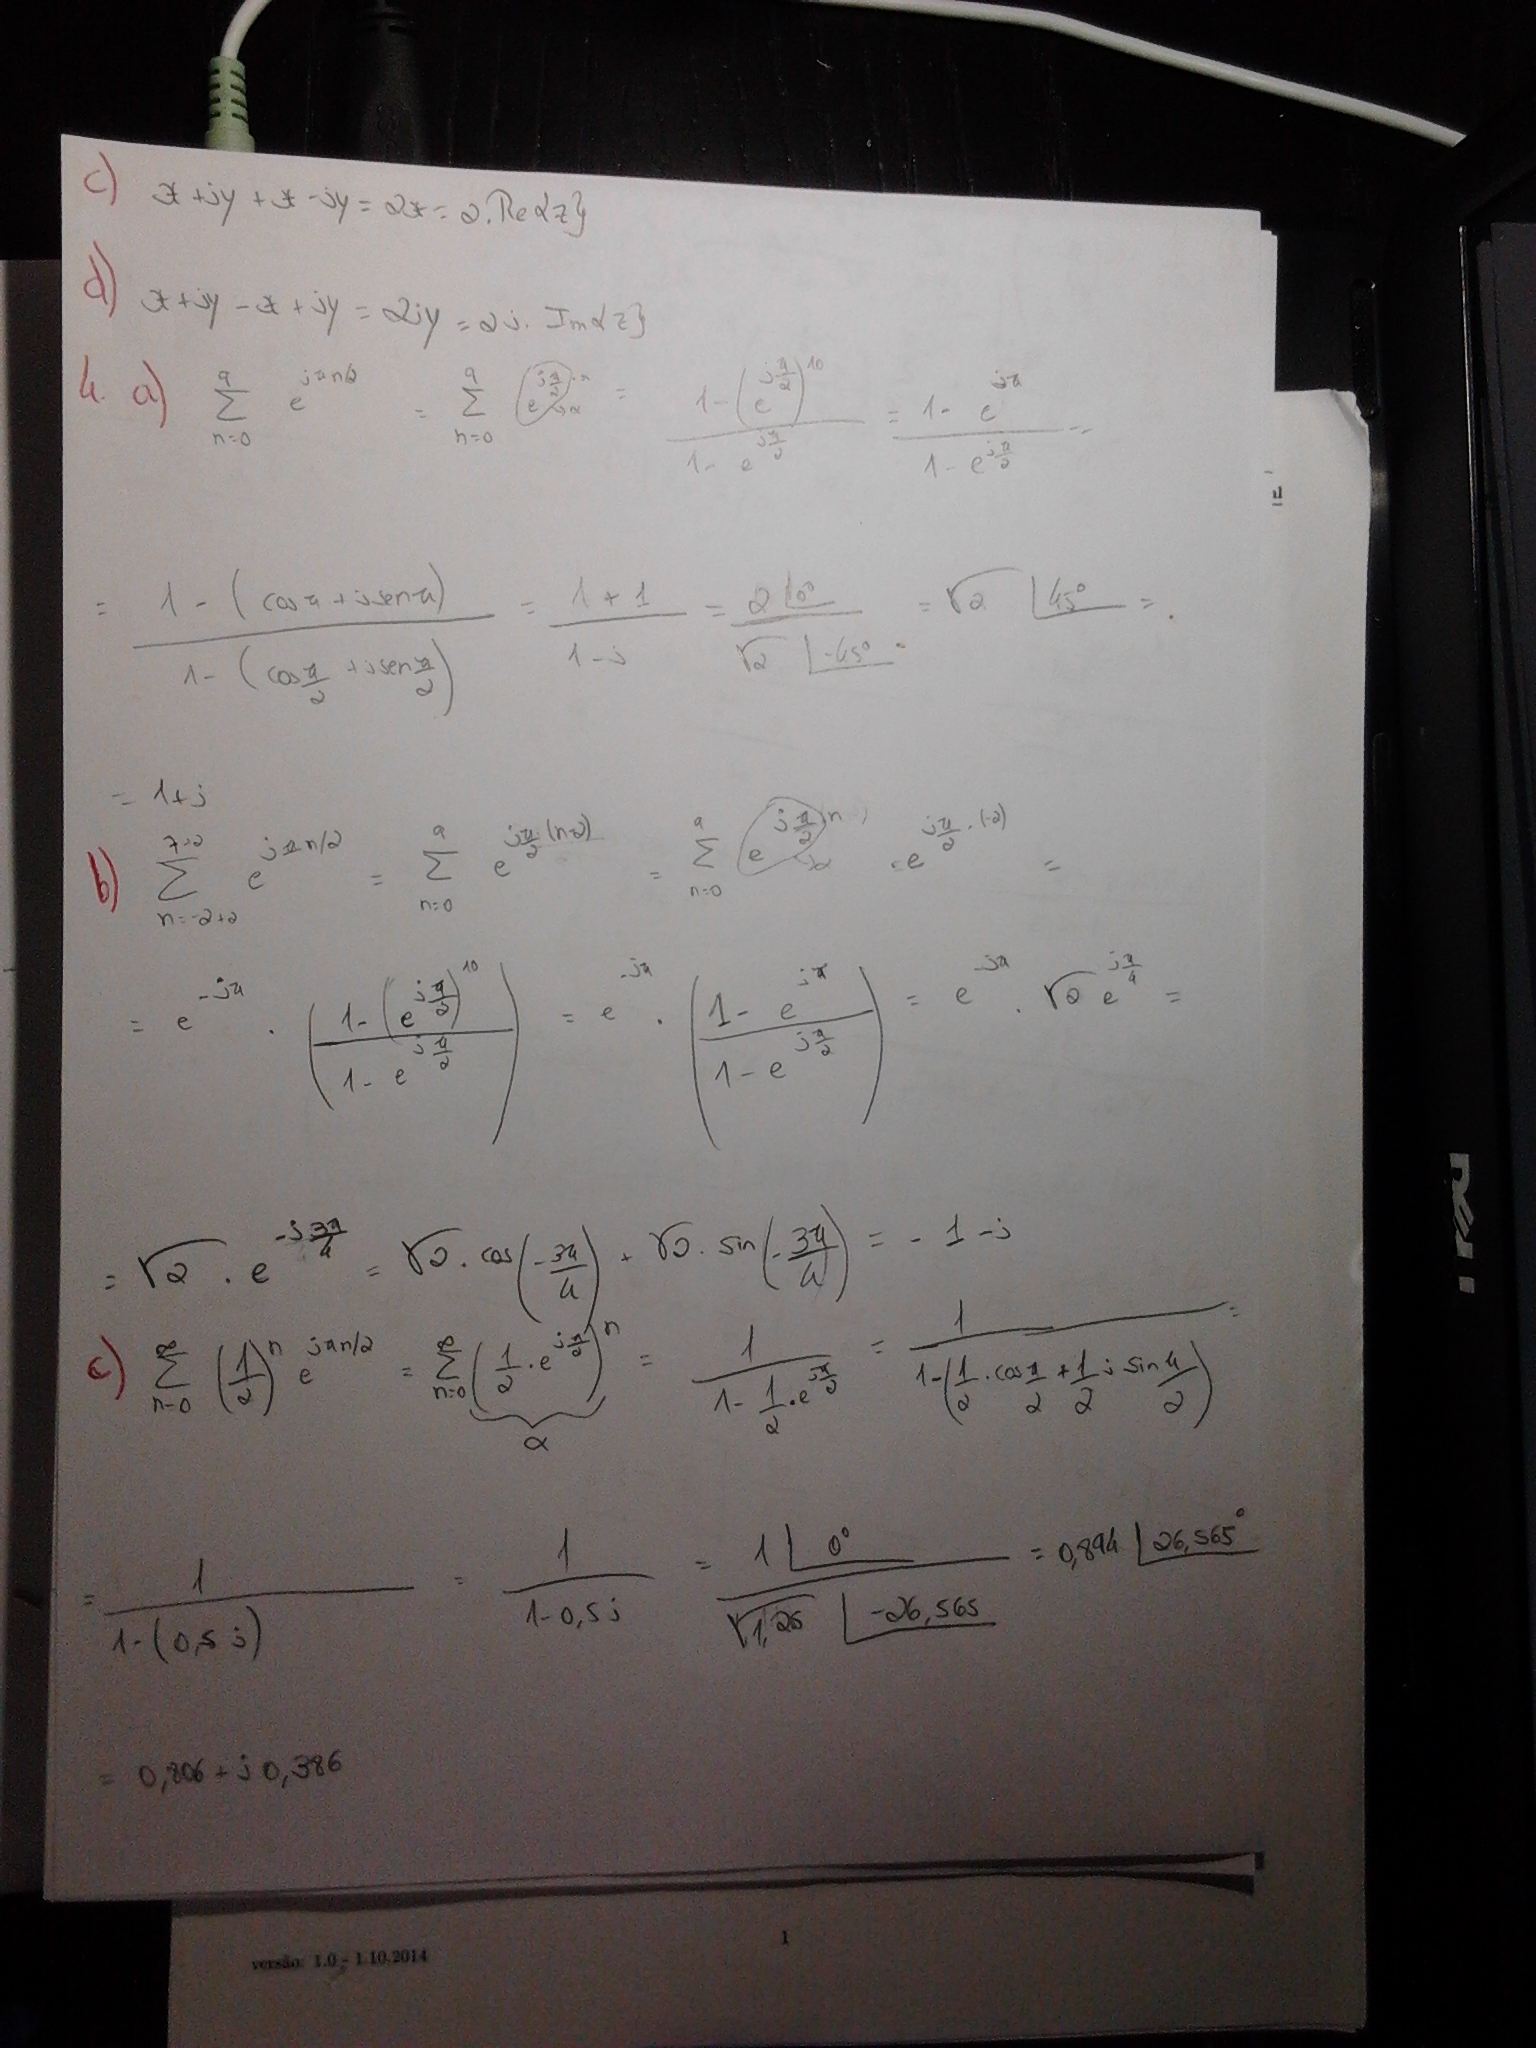 c) x + jy + x - jy = 2x = 2.Re{z}
d) x + jy - x + jy = 2jy = 2j. Im{z}
4. a) ∑_{n=0}^{9} e^{jπn/2} = ∑_{n=0}^{9} (e^{jπ/2})^n → α = (1-(e^{jπ/2})^{10})/(1-e^{jπ/2}) = (1-e^{jπ})/(1-e^{jπ/2}) =
= (1-(cosπ + jsenπ))/(1-(cos π/2 + jsen π/2)) = (1+1)/(1-j) = (2∠0°)/(√2 ∠-45°) = √2 ∠45° =
= 1+j
b) ∑_{n=-2+2}^{7+2} e^{jπn/2} = ∑_{n=0}^{9} e^{jπ/2 (n-2)} = ∑_{n=0}^{9} (e^{jπ/2})^n → α . e^{jπ/2 . (-2)} =
= e^{-jπ} . ((1-(e^{jπ/2})^{10})/(1-e^{jπ/2})) = e^{-jπ} . ((1-e^{jπ})/(1-e^{jπ/2})) = e^{-jπ} . √2 e^{jπ/4} =
= √2 . e^{-j3π/4} = √2 . cos(-3π/4) + √2 . sin(-3π/4) = -1-j
c) ∑_{n=0}^{∞} (1/2)^n e^{jπn/2} = ∑_{n=0}^{∞} (1/2 . e^{jπ/2})^n = 1/(1-1/2 . e^{jπ/2}) = 1/(1-(1/2 . cos π/2 + 1/2 j sin π/2)) =
α
= 1/(1-(0,5j)) = 1/(1-0,5j) = (1∠0°)/(√1,25 ∠-26,565) = 0,894 ∠26,565°
= 0,806 + j0,386
DELL
1
versão: 1.0 - 1.10.2014